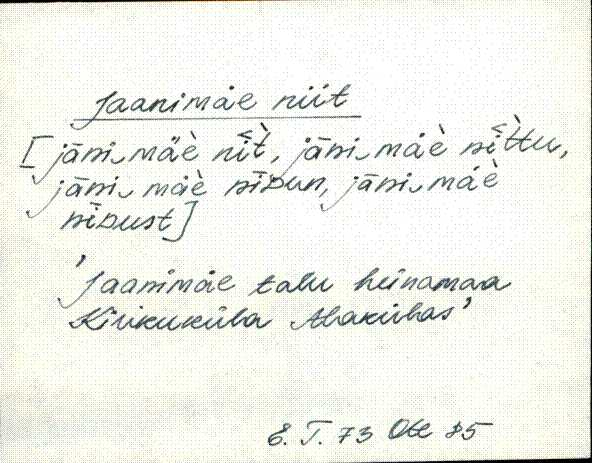 Jaanimäe niit
[jāni‿mäè nīt̀, jāni‿mäè nīt̀tu,
jāni‿mäè nīᴅun, jāni‿mäè
nīᴅust]
'Jaanimäe talu heinamaa
Kirikuküla Alakülas'
E. T. 73 Ote 85